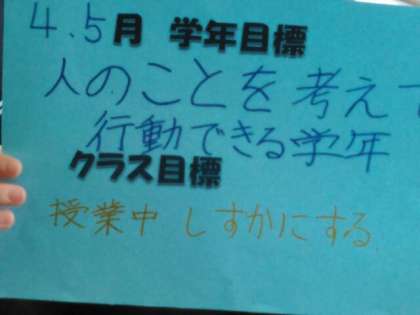 4.5月 学年目標
人のことを考えて
行動できる学年
クラス目標
授業中 しずかにする